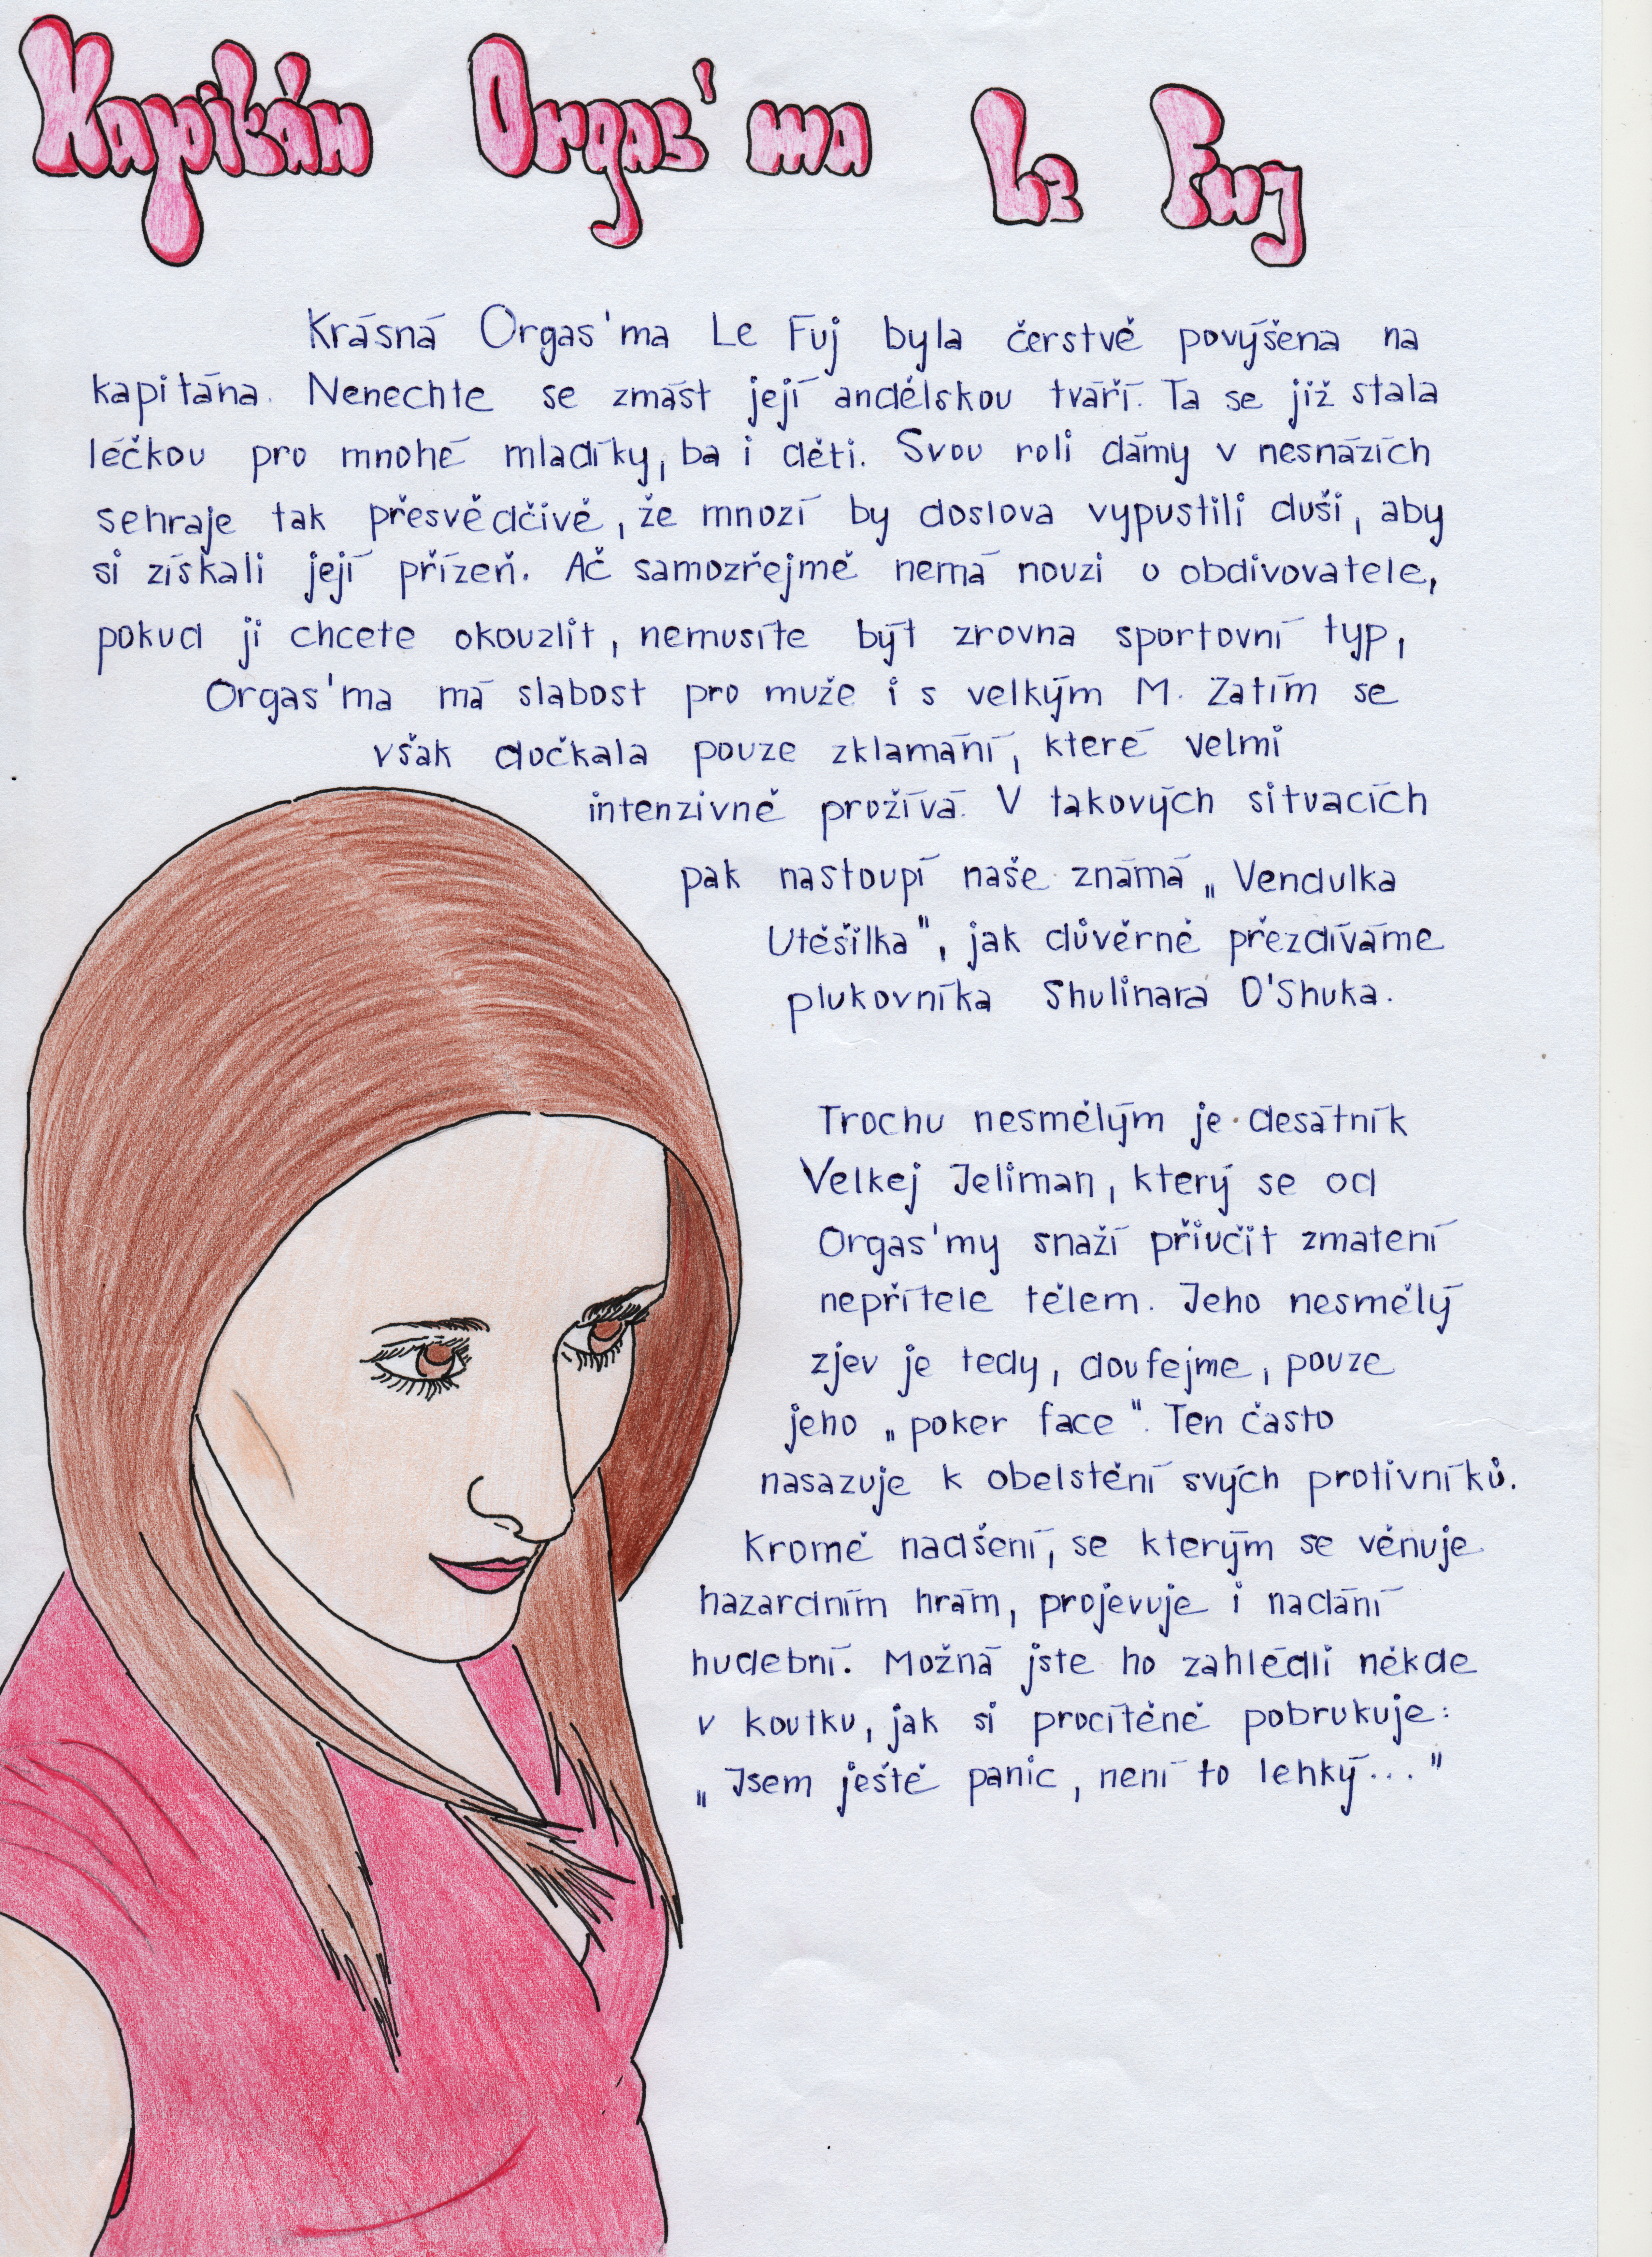 Kapitán Orgas'ma Le Fuj
Krásná Orgas'ma Le Fuj byla čerstvě povýšena na
kapitána. Nenechte se zmást její andělskou tváří. Ta se již stala
léčkou pro mnohé mladíky, ba i děti. Svou roli dámy v nesnázích
sehraje tak přesvědčivě, že mnozí by doslova vypustili duši, aby
si získali její přízeň. Ač samozřejmě nemá nouzi o obdivovatele,
pokud ji chcete okouzlit, nemusíte být zrovna sportovní typ,
Orgas'ma má slabost pro muže i s velkým M. Zatím se
však dočkala pouze zklamání, které velmi
intenzivně prožívá. V takových situacích
pak nastoupí naše známá „Vendulka
Utěšilka", jak důvěrně přezdíváme
plukovníka Shulinara D'Shuka.
Trochu nesmělým je desátník
Velkej Jeliman, který se od
Orgas'my snaží přiučit zmatení
nepřítele tělem. Jeho nesmělý
zjev je tedy, doufejme, pouze
jeho „poker face". Ten často
nasazuje k obelstění svých protivníků.
Kromě nadšení, se kterým se věnuje
hazardním hrám, projevuje i nadání
hudební. Možná jste ho zahlédli někde
v koutku, jak si procítěně pobrukuje:
„Jsem ještě panic, není to lehký..."